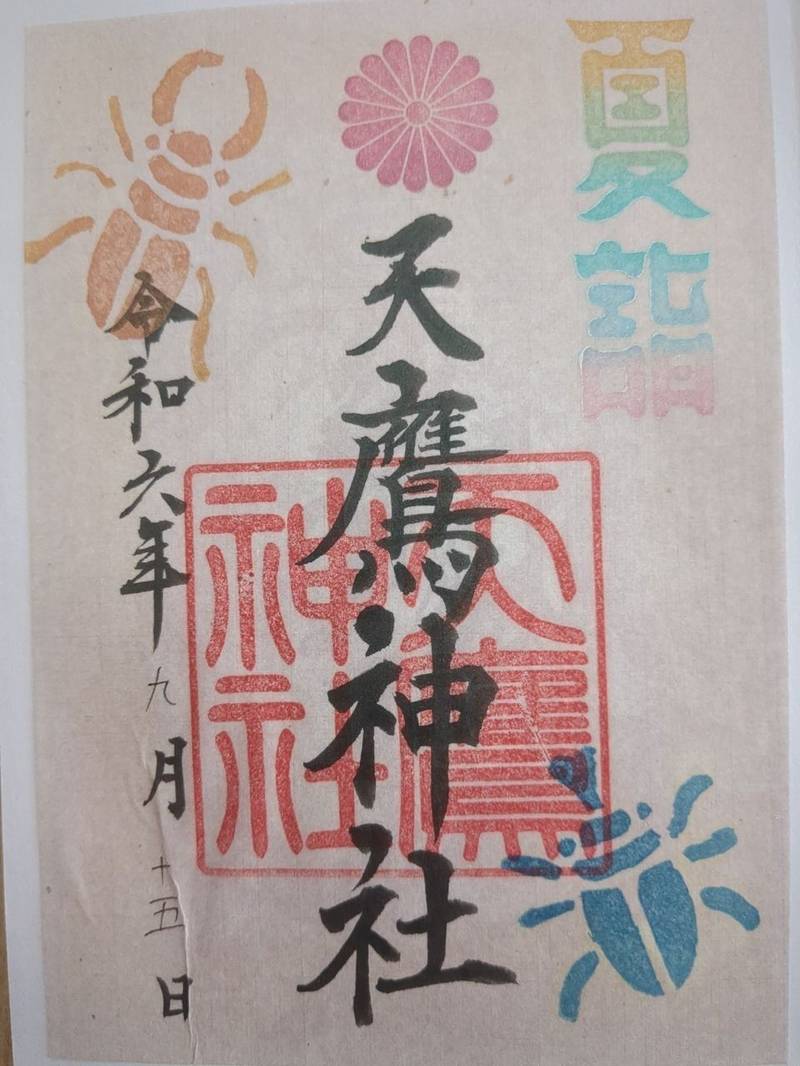 夏詣
天鷹神社
天鷹神社
令和六年九月十五日